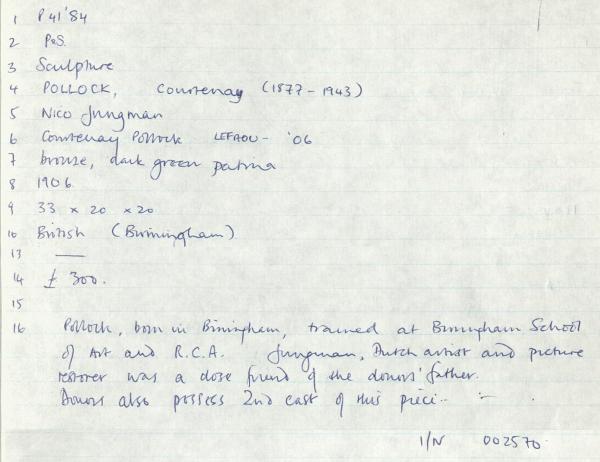 1 P41'84
2 P&S.
3 Sculpture
4 POLLOCK, Courtenay (1877-1943)
5 Nico Jungman
6 Courtenay Pollock LEFAOU - '06
7 bronze, dark green patina
8 1906.
9 33 x 20 x 20
10 British (Birmingham)
13 —
14 £ 300.
15
16 Pollock, born in Birmingham, trained at Birmingham School
of Art and R.C.A. Jungman, Dutch artist and picture
restorer was a close friend of the donors' father.
Donors also possess 2nd cast of this piece.
I/N 002570